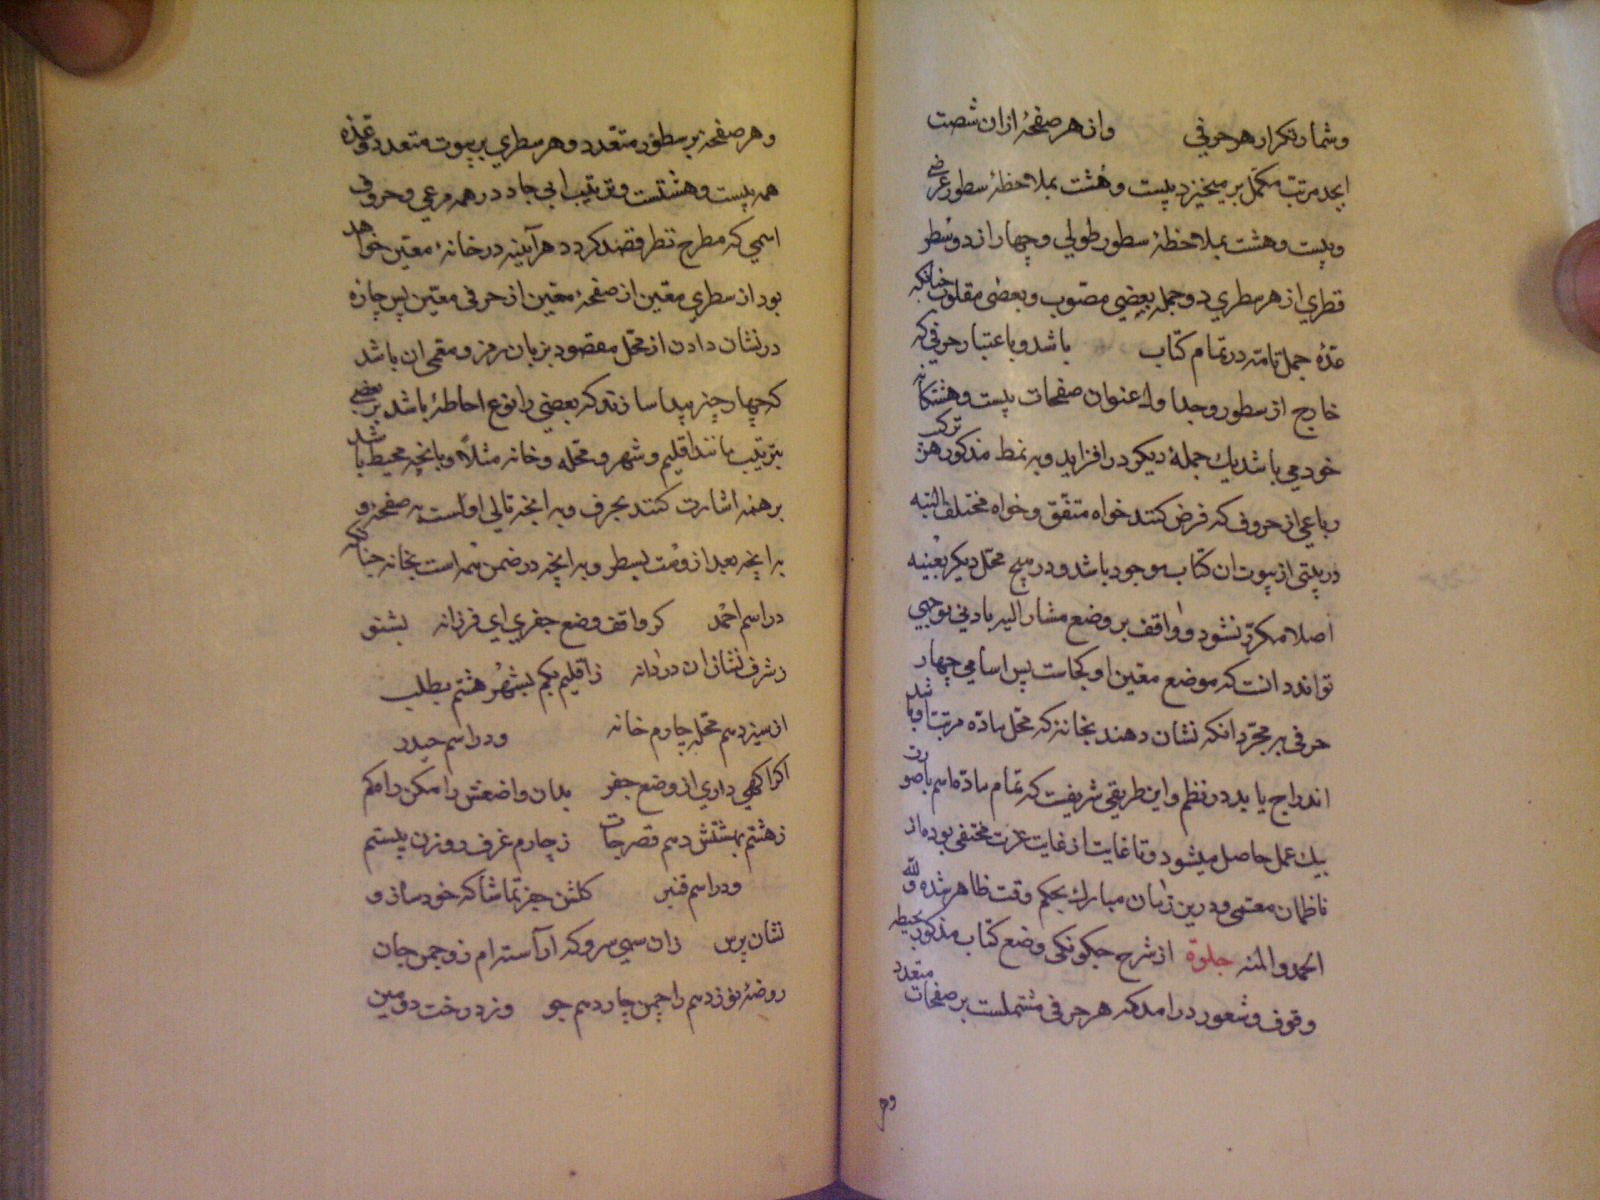 وشمار تکرار هر حرفی واز هر صفحهٔ ازان شصت
ابجد مرتب مکمل بر میخیزد بیست وهشت بملاحظهٔ سطور عرضی
وبیست وهشت بملاحظهٔ سطور طولی وچهار از دو سطر
قطری از هر سطری دو جمله بعضی منصوب وبعضی مقلوب چنانکه
عدهٔ جمل تامه در تمام کتاب باشد وباعتبار حرفی که
خارج از سطور وجداول عنوان صفحات بیست وهشتگانه
خود می باشد یک جملهٔ دیگر در افزاید وبه نمط مذکور هر ترکیب
رباعی از حروف که فرض کنند خواه متفق وخواه مختلف البته
در بیتی از بیوت ان کتاب موجود باشد ودر هیچ محل دیگر بعینه
اصلا مکرر نشود وواقف بر وضع مشار الیه بادنی توجهی
تواند دانست که موضع معین او کجاست پس اسامی چهار
حرفی به مجرد انکه نشان دهند بخانهٔ که محل مادهٔ مرتب او باشد
اندراج یابد در نظم واین طریقی شریفست که تمام مادهٔ اسم با صورت
بیک عمل حاصل میشود وتا غایت از غایت عزت مختفی بوده از
ناظمان معمی ودرین زمان مبارک بحکم وقت ظاهر شده ولله
الحمد والمنه جلوة از شرح چگونگی وضع کتاب مذکور بحیطه
وقوف وشعور در امد که هر حرفی مشتملست بر صفحات متعدد
وهر
وهر صفحه بر سطور متعدد وهر سطری بر بیوت متعدد وعده
همه بیست وهشتست وترتیب ابی جاد در همه مرعی وحروف
اسمی که مطرح نظر قصد کردد هر آینه در خانهٔ معین خواهد
بود از سطری معین از صفحهٔ معین از حرفی معین پس چاره
در نشان دادن از محل مقصود بزبان رمز ومعمی ان باشد
که چهار چیز پیدا سازند که بعضی را نوع احاطهٔ باشد بر بعضی
بترتیب مانند اقلیم وشهر ومحله وخانه مثلاً وبانچه محیط باشد
بر همه اشارت کنند بحرف وبه انچه تالی اوست به صفحه و
به انچه بعد ازوست بسطر وبه انچه در ضمن همه است بخانه چنانکه
در اسم احمد کر واقف وضع جفری ای فرزانه بشنو
ز شرف نشان ان دردانه ز اقلیم یکم بشهر هشتم بطلب
از سیزدهم محله چارم خانه ودر اسم حیدر
اکر اکهی داری از وضع جفر بدان واضعش را مکن رامکم
ز هشتم بهشتش دهم قصر جات ز چارم غرف روزن بیستم
ودر اسم قنبر کلشن جفر تماشاکه خود ساز و
نشان پرس زان سهی سرو که ار آستهرام ز وچمن جان
روضهٔ نوزدهم را چمن چاردهم جو ونزد رخت دومین